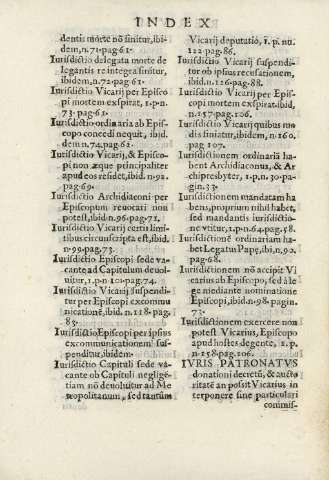 INDEX
dentis morte nõ finitur, ibi-
dem, n. 71. pag 61.
Iurisdictio delegata morte de
legantis re integra finitur,
ibidem, n. 72. pag 61.
Iurisdictio Vicarij per Episco
pi mortem exspirat, 1. p. n.
73. pag 61.
Iurisdictio ordinaria ab Epis-
copo concedi nequit, ibid.
dem n. 74. pag. 62.
Iurisdictio Vicarij, & Episco-
pi non æque principaliter
apud eos residet, ibid. n. 92.
pag 69.
Iurisdictio Archidiaconi per
Episcopum reuocari non
potest, ibid. n. 96. pag. 72.
Iurisdictio Vicarij certis limi-
tibus circumscripta est, ibid.
n. 99. pag. 73.
Iurisdictio Episcopi sede va-
cante ad Capitulum deuol-
uitur, 1. p. n 101. pag. 74.
Iurisdictio Vicarij suspendi-
tur per Episcopi excommu
nicationē, ibid. n. 118. pag.
83.
Iurisdictio Episcopi per ipsius
excommunicationem sus-
penditur, ibidem.
Iurisdictio Capituli sede va-
cante ob Capituli neglige-
tiam nõ deuoluitur ad Me
tropolitanum, sed tantum
Vicarij deputatio, 1. p. nu.
122. pag. 86.
Iurisdictio Vicarij suspendi-
tur ob ipsius recusationem,
ibid. n. 126. pag. 88.
Iurisdictio Vicarij per Epis-
copi mortem exspirat. ibid.
n. 157. pag. 106.
Iurisdictio Vicarij quibus mo
dis finiatur, ibidem, n. 160.
pag 107.
Iurisdictionem ordinariā ha-
bent Archidiaconus, & Ar
chipresbyter, 1. p. n. 30. pa-
gin. 33.
Iurisdictionem mandatam ha
bens, proprium nihil habet,
sed mandantis iurisdictio-
ne vtitur, 1. p. n. 64. pag. 58.
Iurisdictionē ordinariam ha-
bet Legatus Papę, ibi, n. 90.
pag. 68.
Iurisdictionem nõ accipit Vi
carius ab Episcopo, sed à le
ge mediante nominatione
Episcopi, ibid. n. 98. pagin.
73.
Iurisdictionem exercere non
potest Vicarius, Episcopo
apud hostes degente, 1. p.
n. 158. pag. 106.
IVRIS PATRONATVS
donationi decretū, & aucto
ritatē an possit Vicarius in
terponere sine particulari
commis-